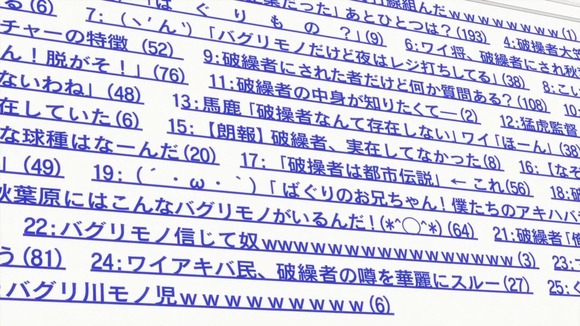 る(6) 7:(ヽ'ん')「バグリモノだけど夜はレジ打ちしてる」(38) 8:こし
「ばぐりもの?」(9) 6:ワイ将、破繰者にされ秋
だった」あとひとつは?(193) 4:破操者大
線組んだwwwwwwwww(1)
チャーの特徴(52) 9:破繰者にされた者だけど何か質問ある?(108) 10:
ん!脱がそ!」(76) 11:破繰者の中身が知りたくて―(2) 12:猛虎監督
ないわね」(48) 13:馬鹿「破操者なんて存在しない」ワイ「ほーん」(38)
在していた(6) 15:【朗報】破繰者、実在してなかった(8) 16:【なぞ
な球種はなーんだ(20) 17:「破操者は都市伝説」←これ(56) 18:破
」(49) 19:(´・ω・`)「ばぐりのお兄ちゃん!僕たちのアキハバ
秋葉原にはこんなバグリモノがいるんだ!(*^◯^*)(64) 21:破繰者「俺
22:バグリモノ信じて奴wwwwwwwwwwwwwwwwww(3) 23:
う(81) 24:ワイアキバ民、破繰者の噂を華麗にスルー(27) 25:
バグリ川モノ児wwwwwwwww(6)